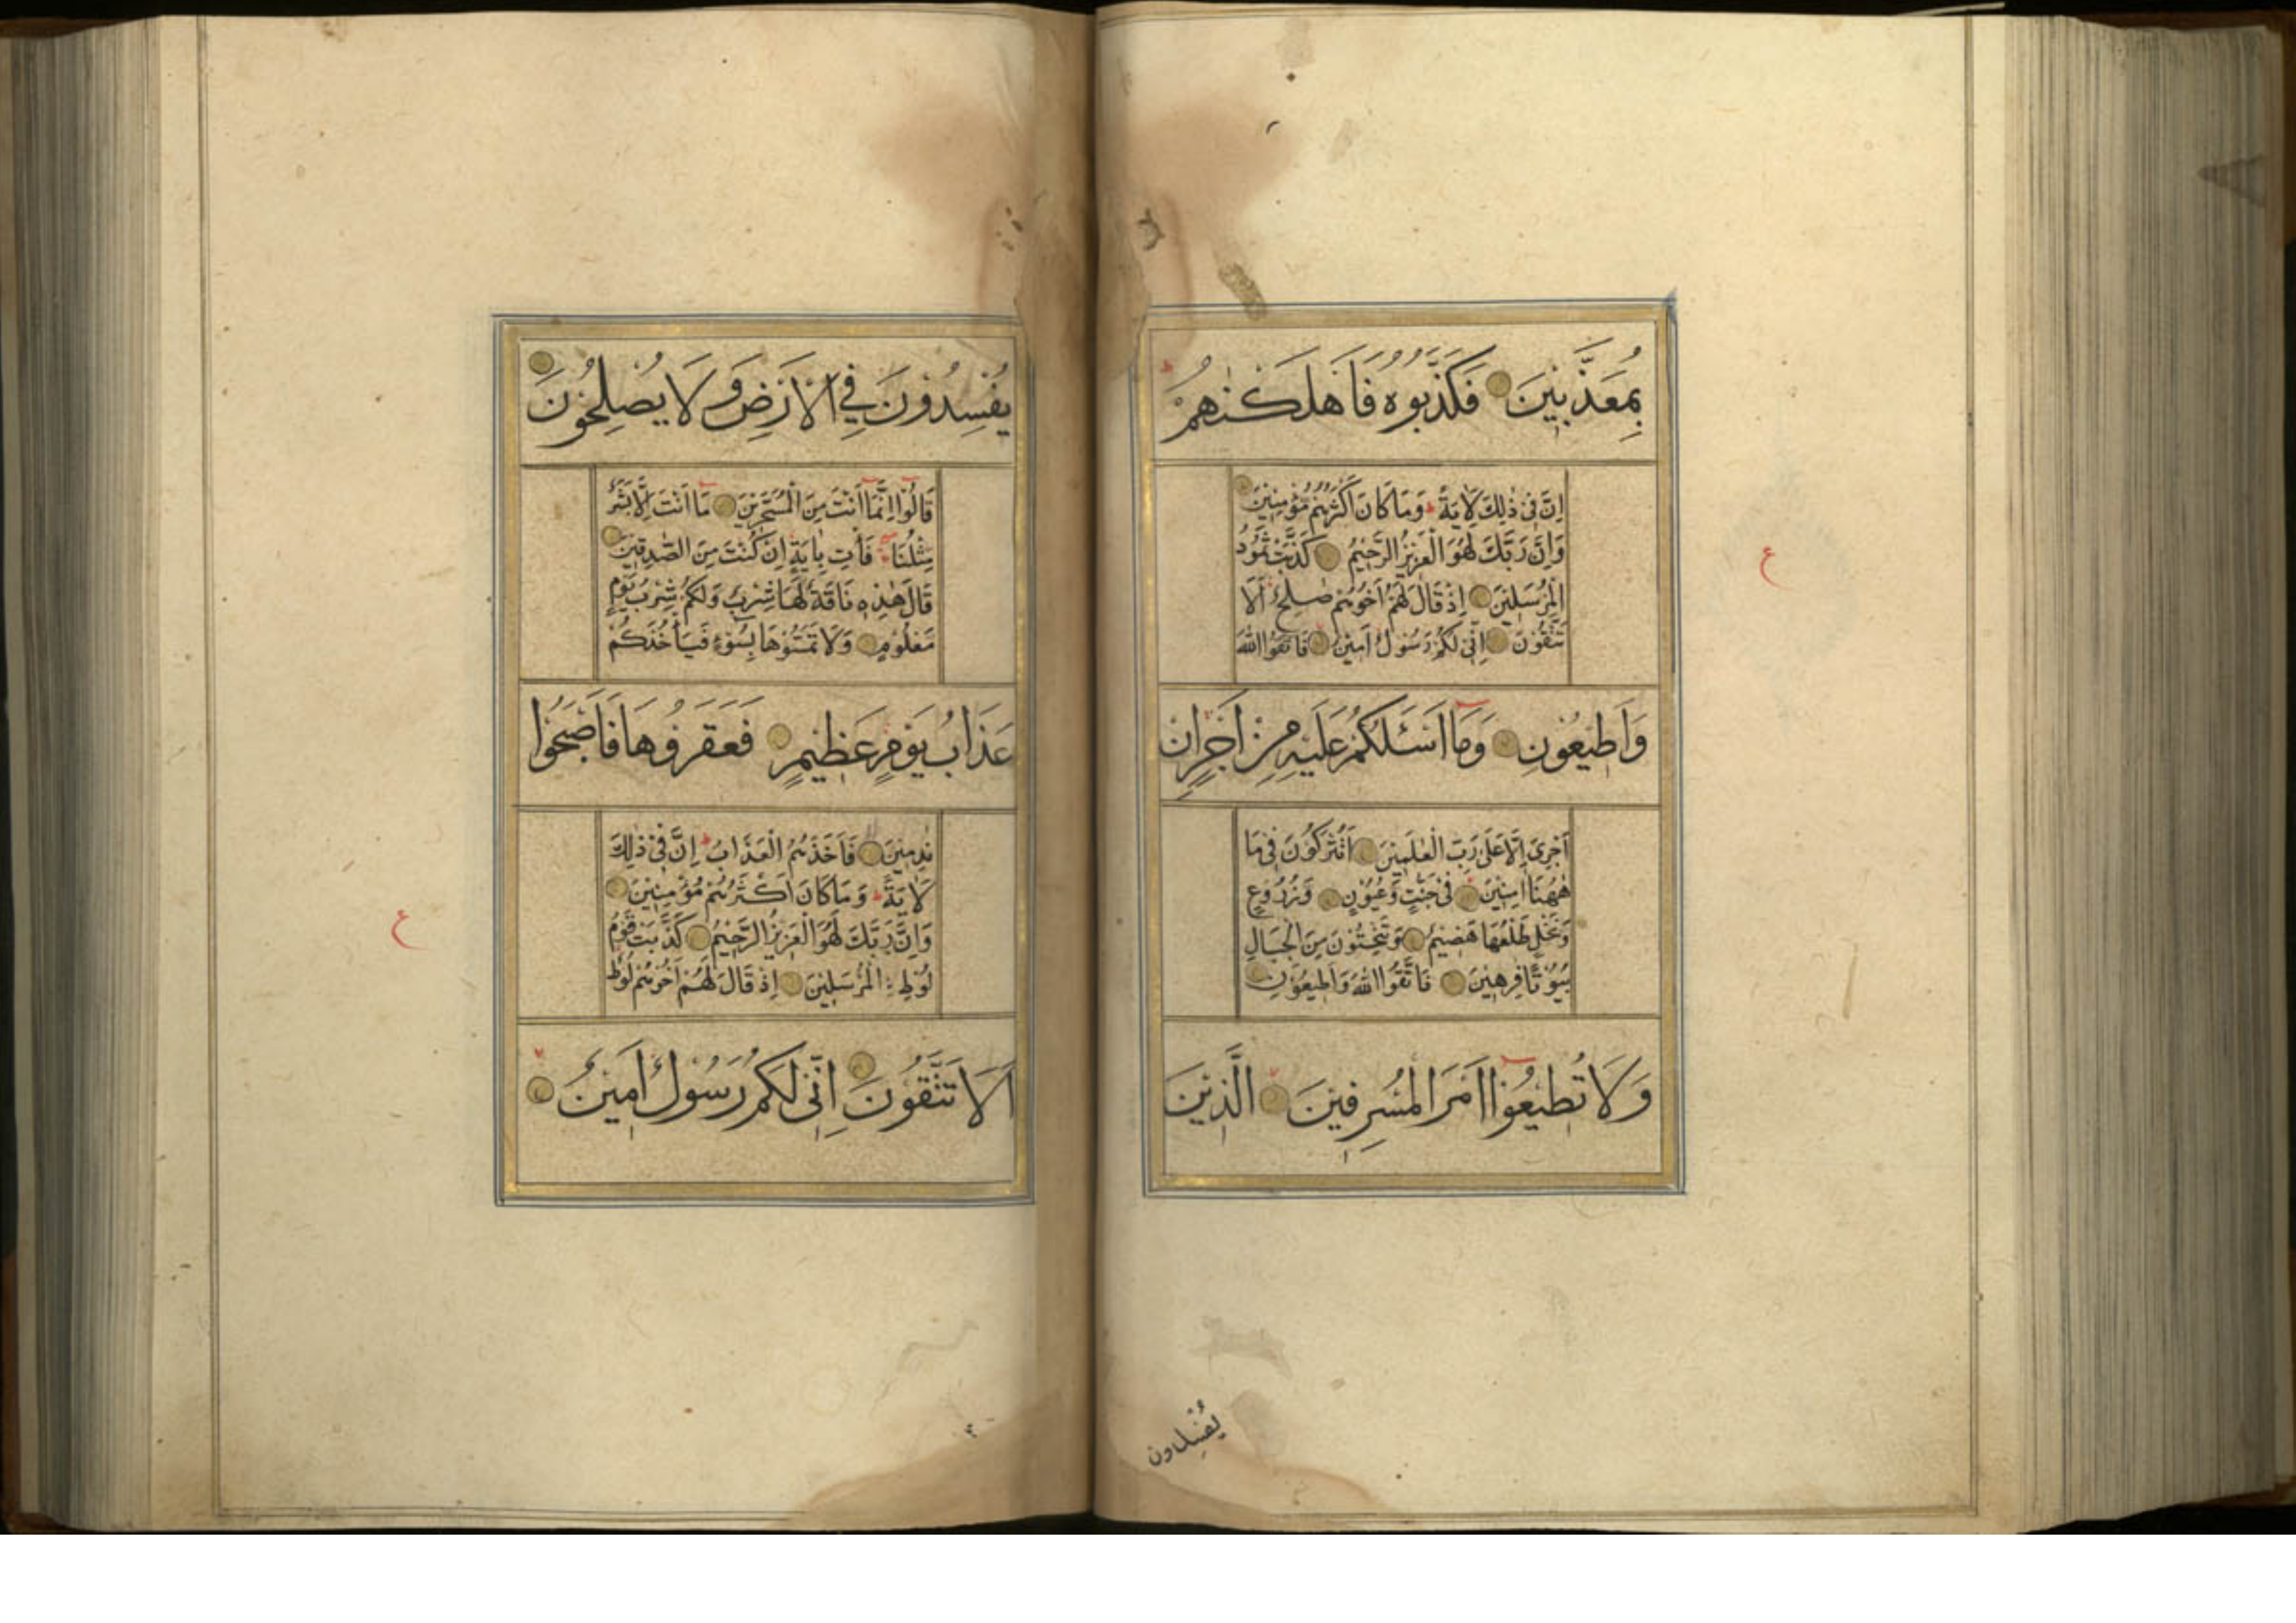 بِمُعَذَّبِينَ فَكَذَّبُوهُ فَاَهْلَكْنٰهُمْ
اِنَّ فِى ذٰلِكَ لَاٰيَةً ط وَمَا كَانَ اَكْثَرُهُمْ مُؤْمِنِينَ
وَاِنَّ رَبَّكَ لَهُوَ الْعَزِيزُ الرَّحِيمُ كَذَّبَتْ ثَمُودُ
الْمُرْسَلِينَ اِذْ قَالَ لَهُمْ اَخُوهُمْ صٰلِحٌ اَلَا
تَتَّقُونَ اِنِّى لَكُمْ رَسُولٌ اَمِينٌ فَاتَّقُوا اللّٰهَ
وَاَطِيعُونِ وَمَا اَسْـَٔلُكُمْ عَلَيْهِ مِنْ اَجْرٍ اِنْ
اَجْرِىَ اِلَّا عَلٰى رَبِّ الْعٰلَمِينَ اَتُتْرَكُونَ فِى مَا
هٰهُنَا اٰمِنِينَ فِى جَنّٰتٍ وَعُيُونٍ وَزُرُوعٍ
وَنَخْلٍ طَلْعُهَا هَضِيمٌ وَتَنْحِتُونَ مِنَ الْجِبَالِ
بُيُوتًا فٰرِهِينَ فَاتَّقُوا اللّٰهَ وَاَطِيعُونِ
وَلَا تُطِيعُوا اَمْرَ الْمُسْرِفِينَ الَّذِينَ
ع
يُفْسِدُونَ
يُفْسِدُونَ فِى الْاَرْضِ وَلَا يُصْلِحُونَ
قَالُوا اِنَّمَا اَنْتَ مِنَ الْمُسَحَّرِينَ مَا اَنْتَ اِلَّا بَشَرٌ
مِثْلُنَا فَأْتِ بِاٰيَةٍ اِنْ كُنْتَ مِنَ الصّٰدِقِينَ
قَالَ هٰذِهِ نَاقَةٌ لَهَا شِرْبٌ وَلَكُمْ شِرْبُ يَوْمٍ
مَعْلُومٍ وَلَا تَمَسُّوهَا بِسُوءٍ فَيَأْخُذَكُمْ
عَذَابُ يَوْمٍ عَظِيمٍ فَعَقَرُوهَا فَاَصْبَحُوا
نٰدِمِينَ فَاَخَذَهُمُ الْعَذَابُ ط اِنَّ فِى ذٰلِكَ
لَاٰيَةً ط وَمَا كَانَ اَكْثَرُهُمْ مُؤْمِنِينَ
وَاِنَّ رَبَّكَ لَهُوَ الْعَزِيزُ الرَّحِيمُ كَذَّبَتْ قَوْمُ
لُوطٍ الْمُرْسَلِينَ اِذْ قَالَ لَهُمْ اَخُوهُمْ لُوطٌ
اَلَا تَتَّقُونَ اِنِّى لَكُمْ رَسُولٌ اَمِينٌ
ع